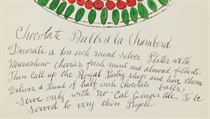 Chocolate Balls a la Chambord
"Decorate a ten inch round silver Platter with
Maraschino cherries fresh mint and almond filberts.
Then call up the Royal Pastry shop and have them
Deliver a Pound of half inch chocolate balls
Serve only with no-Cal Gingerale. To be
served to very thin People